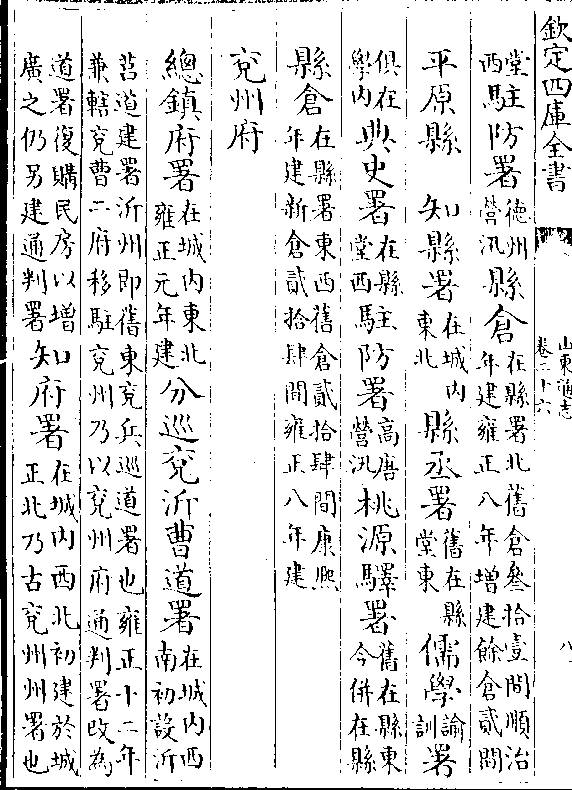 欽定四庫全書
山東通志
卷二十六
八
堂西駐防署德州營汛縣倉在縣署北舊倉叁拾壹間順治年建雍正八年增建餘倉貳間
平原縣　知縣署在城内東北縣丞署舊在縣堂東儒學諭訓署
俱在學内典史署在縣堂西駐防署高唐營汛桃源驛署舊在縣東今併在縣
縣倉在縣署東西舊倉貳拾肆間康熙年建新倉貳拾肆間雍正八年建
兖州府
總鎮府署在城内東北雍正元年建分巡兖沂曹道署在城内西南初設沂
莒道建署沂州即舊東兖兵巡道署也雍正十二年兼轄兖曹二府移駐兖州乃以兖州府通判署改為
道署復購民房以增廣之仍另建通判署知府署在城内西北初建於城正北乃古兖州州署也